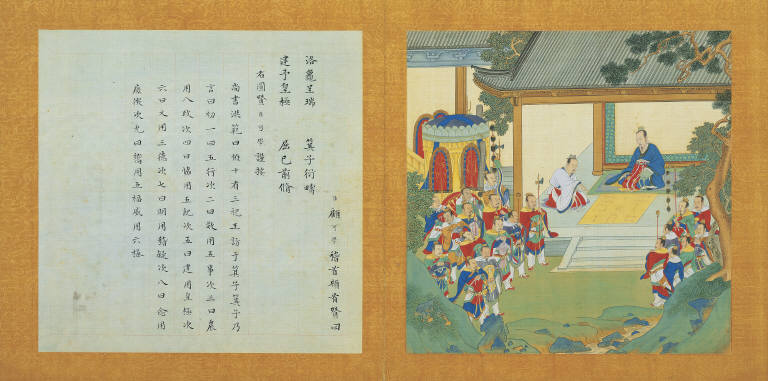 臣顧可學稽首頓首贊曰
洛龜呈瑞　箕子衍疇
建予皇極　屈己前脩
右圖贊臣可學謹按
尚書洪範曰惟十有三祀王訪于箕子箕子乃
言曰初一曰五行次二曰敬用五事次三曰農
用八政次四曰協用五紀次五曰建用皇極次
六曰乂用三德次七曰明用稽疑次八曰念用
庶徵次九曰嚮用五福威用六極